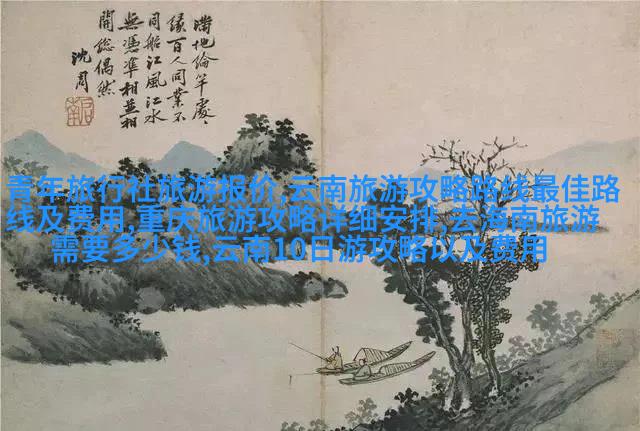 滿地綸竿處々
緣百人同業不
同船江風江水
無憑準相並相
開總偶然
沈周
青年旅行社旅游报价,云南旅游攻略路线最佳路
线及费用,重庆旅游攻略详细安排,去海南旅游
需要多少钱,云南10日游攻略以及费用